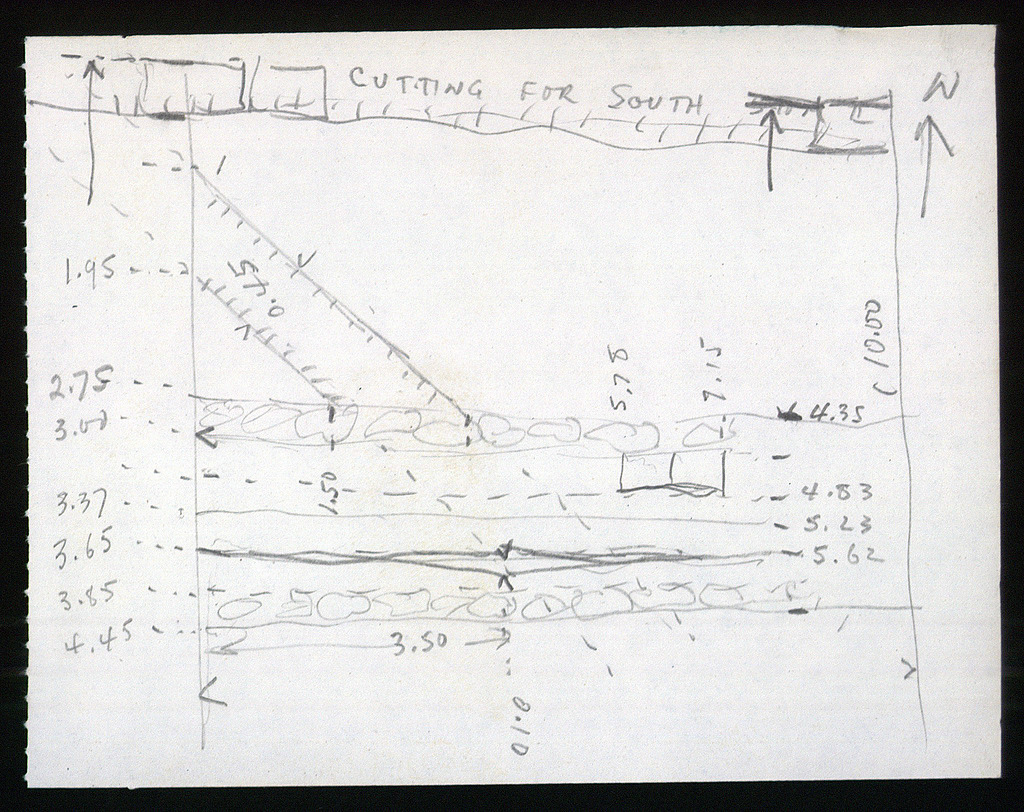 CUTTING FOR SOUTH
N
1.95
0.45
2.75
3.00
5.78
7.15
10.00
4.35
1.50
3.37
4.83
5.23
3.65
5.62
3.85
4.45
3.50
0.10